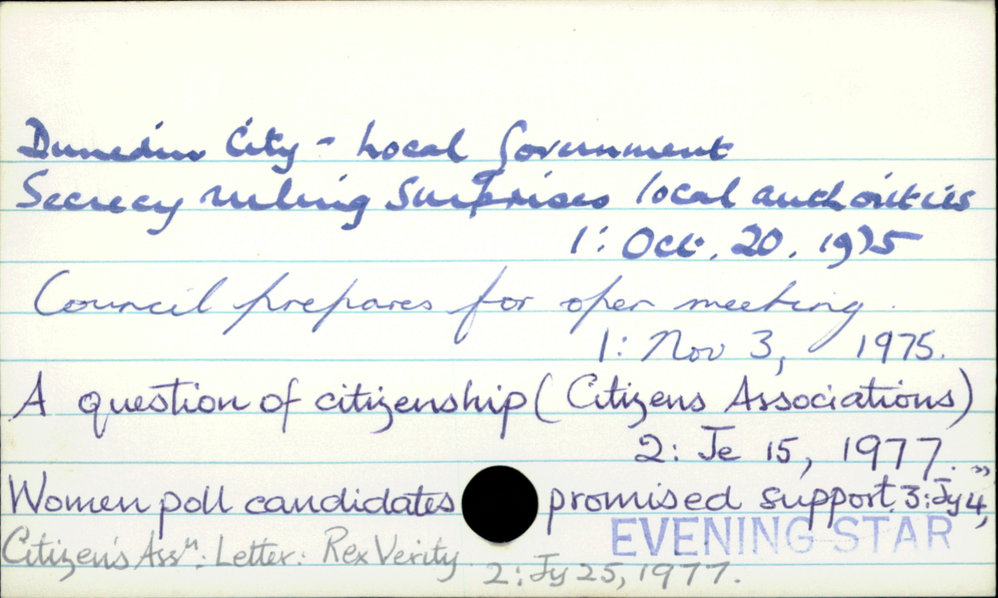 Dunedin City - Local Government
Secrecy ruling surprises local authorities
1: Oct. 20. 1975
Council prepares for open meeting.
1: Nov 3, 1975.
A question of citizenship (Citizens Associations)
2: Je 15, 1977.
Women poll candidates promised support. 3: Jy 4, "
EVENING STAR
Citizen's Assn: Letter: Rex Verity.
2: Jy 25, 1977.